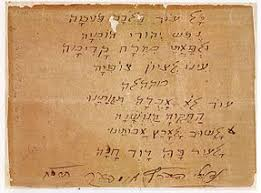 כל עוד בלבב פנימה
נפש יהודי הומיה
ולפאתי מזרח קדימה
עינו לציון צופיה
עוד לא אבדה תקותנו
התקוה הנושנה
לשוב לארץ אבותינו
לעיר בה דוד חנה